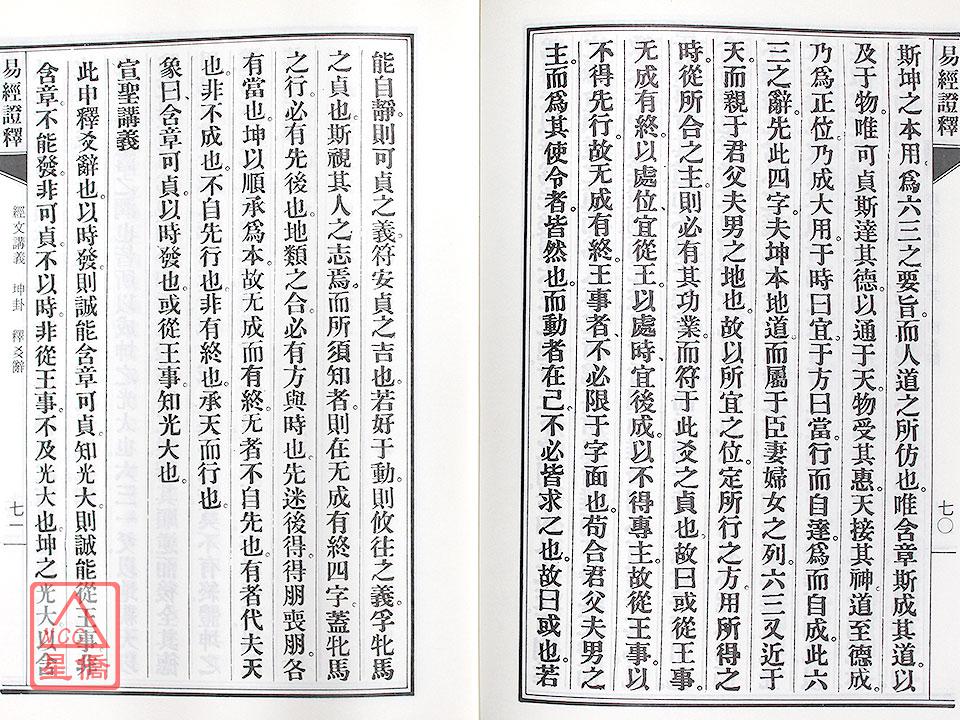 易經證釋
七〇
斯坤之本用。為六三之要旨。而人道之所仿也。唯含章斯成其道。以
及于物。唯可貞斯達其德。以通于天。物受其惠。天接其神。道至德成。
乃為正位。乃成大用。于時曰宜。于方曰當。行而自達。為而自成。此六
三之辭。先此四字。夫坤本地道。而屬于臣妻婦女之列。六三又近于
天。而親于君父夫男之地也。故以所宜之位。定所行之方。用所得之
時。從所合之主。則必有其功業。而符于此爻之貞也。故曰或從王事。
无成有終。以處位、宜從王。以處時、宜後成。以不得專主。故從王事。以
不得先行。故无成有終。王事者、不必限于字面也。苟合君父夫男之
主。而為其使令者。皆然也。而動者在己。不必皆求之也。故曰或也。若
能自靜。則可貞之義。符安貞之吉也。若好于動。則攸往之義。孚牝馬
之貞也。斯視其人之志焉。而所須知者。則在无成有終四字。蓋牝馬
之行。必有先後也。地類之合。必有方與時也。先迷後得。得朋喪朋。各
有當也。坤以順承為本。故无成而有終。无者不自先也。有者代夫天
也。非不成也。不自先行也。非有終也。承天而行也。
象曰、含章可貞。以時發也。或從王事。知光大也。
宣聖講義
此申釋爻辭也。以時發。則誠能含章可貞。知光大。則誠能從王事。非
含章。不能發。非可貞。不以時。非從王事。不及光大也。坤之光大。以含
易經證釋
經文講義 坤卦 釋爻辭
七一
MCC
星僑